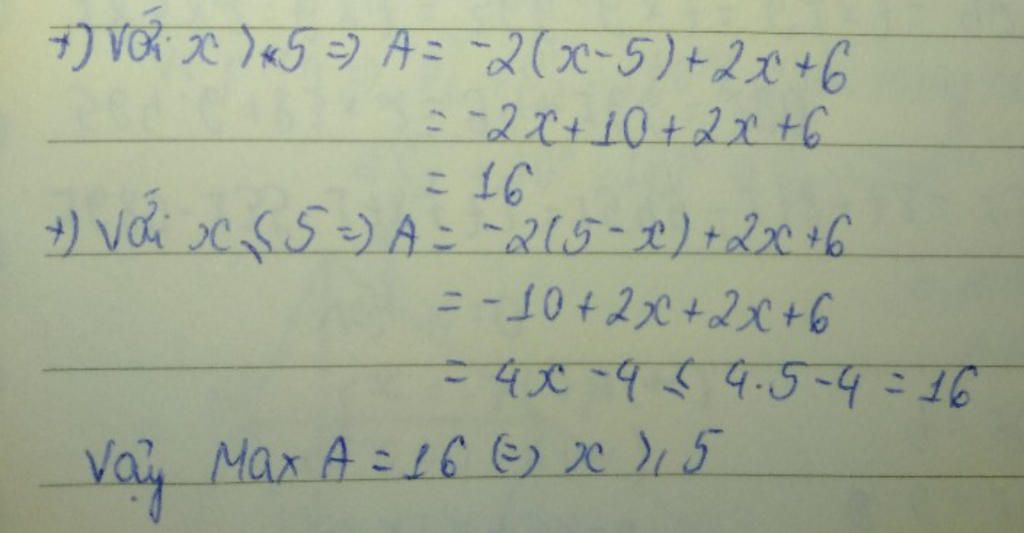 +) Với x ≥ 5 => A = -2(x-5)+2x+6
= -2x+10+2x+6
= 16
+) Với x ≤ 5 => A = -2(5-x)+2x+6
= -10+2x+2x+6
= 4x-4 ≤ 4.5-4 = 16
Vậy Max A = 16 <=> x ≥ 5